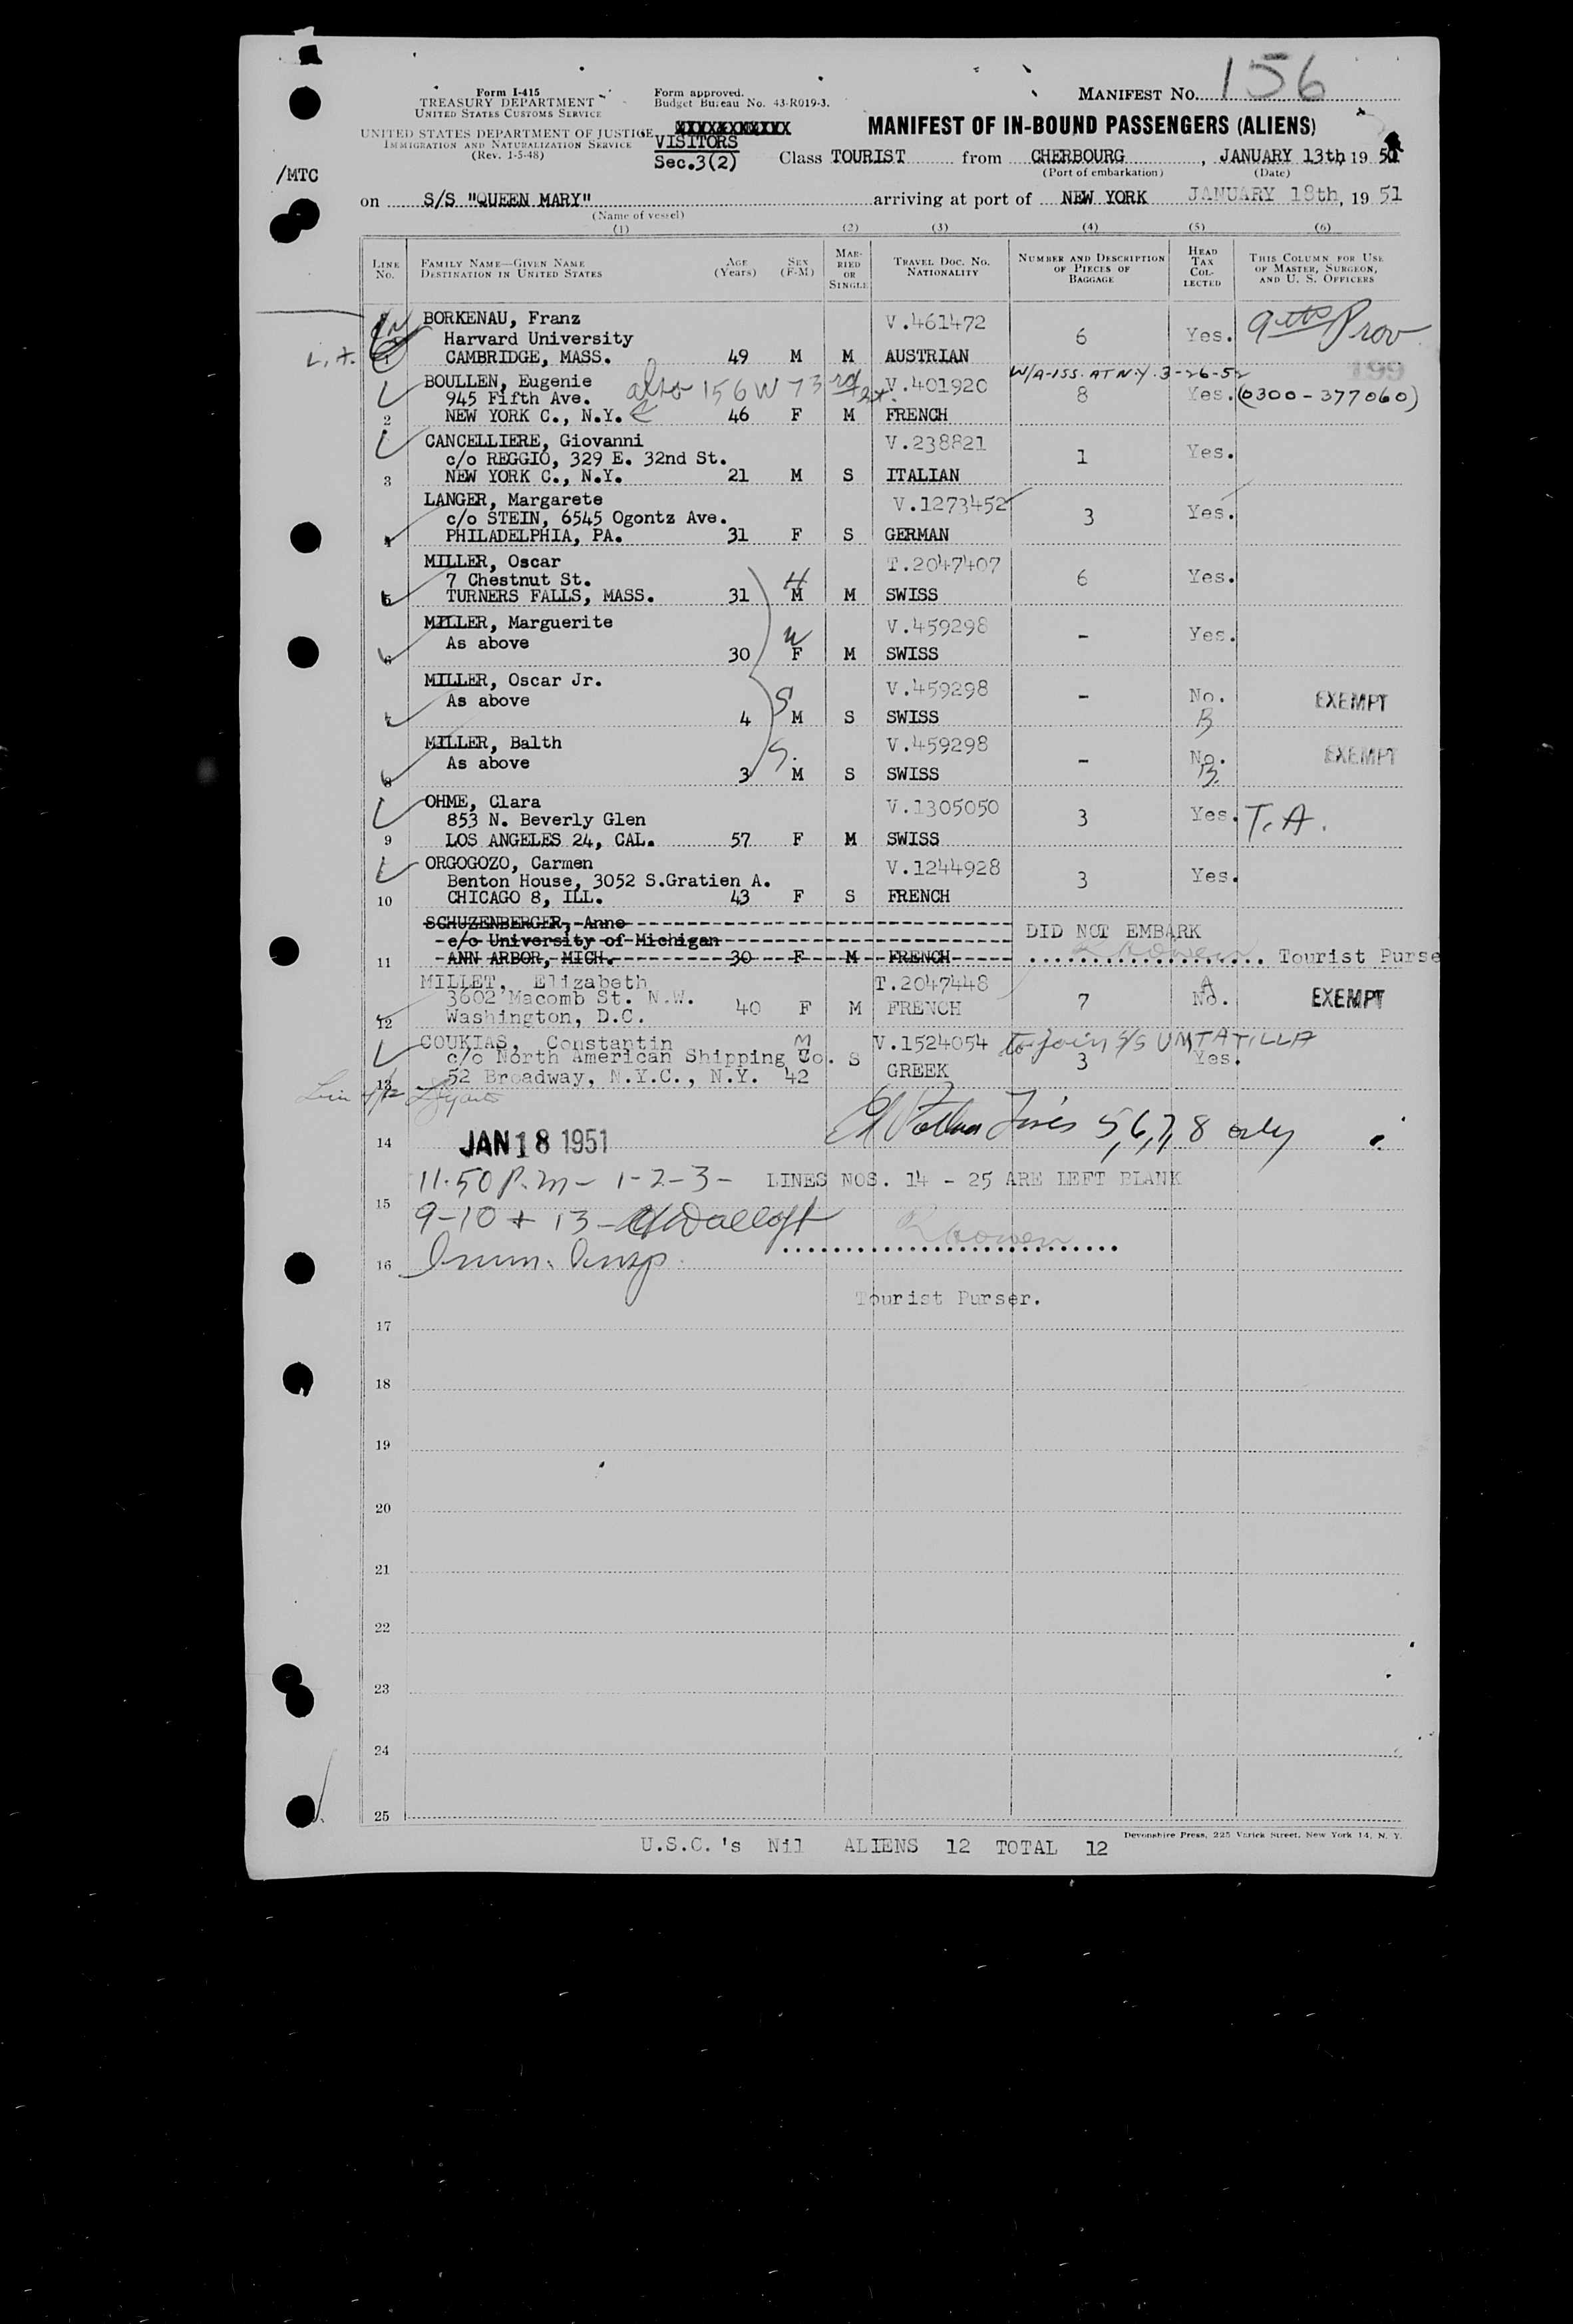 MANIFEST NO. 156
Form I-415
TREASURY DEPARTMENT
UNITED STATES CUSTOMS SERVICE
UNITED STATES DEPARTMENT OF JUSTICE
IMMIGRATION AND NATURALIZATION SERVICE
(Rev. 1-5-48)
Form approved.
Budget Bureau No. 43-R019-3.
VISITORS
Sec.3(2)
MANIFEST OF IN-BOUND PASSENGERS (ALIENS)
Class TOURIST from CHERBOURG, JANUARY 13th, 1951
(Port of embarkation) (Date)
/MTC
on S/S "QUEEN MARY" arriving at port of NEW YORK JANUARY 18th, 1951
(Name of vessel)
(1) (2) (3) (4) (5) (6)
LINE No. FAMILY NAME—GIVEN NAME DESTINATION IN UNITED STATES AGE (Years) SEX (F-M) MARRIED OR SINGLE TRAVEL DOC. NO. NATIONALITY NUMBER AND DESCRIPTION OF PIECES OF BAGGAGE HEAD TAX COLLECTED THIS COLUMN FOR USE OF MASTER, SURGEON, AND U. S. OFFICERS
BORKENAU, Franz V.461472 9th Prov
Harvard University 6 Yes.
1 CAMBRIDGE, MASS. 49 M M AUSTRIAN
W/A-ISS. AT N.Y. 3-26-52 199
BOULLEN, Eugenie also 156 W 73rd St. V.401920
945 Fifth Ave. 8 Yes. (0300-377060)
2 NEW YORK C., N.Y. 46 F M FRENCH
CANCELLIERE, Giovanni V.238821
c/o REGGIO, 329 E. 32nd St. 1 Yes.
3 NEW YORK C., N.Y. 21 M S ITALIAN
LANGER, Margarete V.1273452
c/o STEIN, 6545 Ogontz Ave. 3 Yes.
4 PHILADELPHIA, PA. 31 F S GERMAN
MILLER, Oscar T.2047407
7 Chestnut St. H 6 Yes.
5 TURNERS FALLS, MASS. 31 M M SWISS
MILLER, Marguerite V.459298
As above W - Yes.
6 30 F M SWISS
MILLER, Oscar Jr. V.459298
As above S - No. EXEMPT
7 4 M S SWISS B
MILLER, Balth V.459298
As above S. - No. EXEMPT
8 3 M S SWISS B.
OHME, Clara V.1305050
853 N. Beverly Glen 3 Yes. T.A.
9 LOS ANGELES 24, CAL. 57 F M SWISS
ORGOGOZO, Carmen V.1244928
Benton House, 3052 S.Gratien A. 3 Yes.
10 CHICAGO 8, ILL. 43 F S FRENCH
SCHUZENBERGER, Anne
c/o University of Michigan DID NOT EMBARK
11 ANN ARBOR, MICH. 30 F M FRENCH Tourist Purse
MILLET, Elizabeth T.2047448 A
3602 Macomb St. N.W. 7 No. EXEMPT
12 Washington, D.C. 40 F M FRENCH
COUKIAS, Constantin M V.1524054 to join S/S UMTATILLA
c/o North American Shipping Co. S 3 Yes.
13 52 Broadway, N.Y.C., N.Y. 42 GREEK
Lines 5,6,7,8 only
14 JAN 18 1951
11.50 P.m - 1-2-3- LINES NOS. 14 - 25 ARE LEFT BLANK
15
9-10 + 13 -
16 Imm. Insp.
Tourist Purser.
17
18
19
20
21
22
23
24
25
Devonshire Press, 225 Varick Street, New York 14, N. Y.
U.S.C.'s Nil ALIENS 12 TOTAL 12